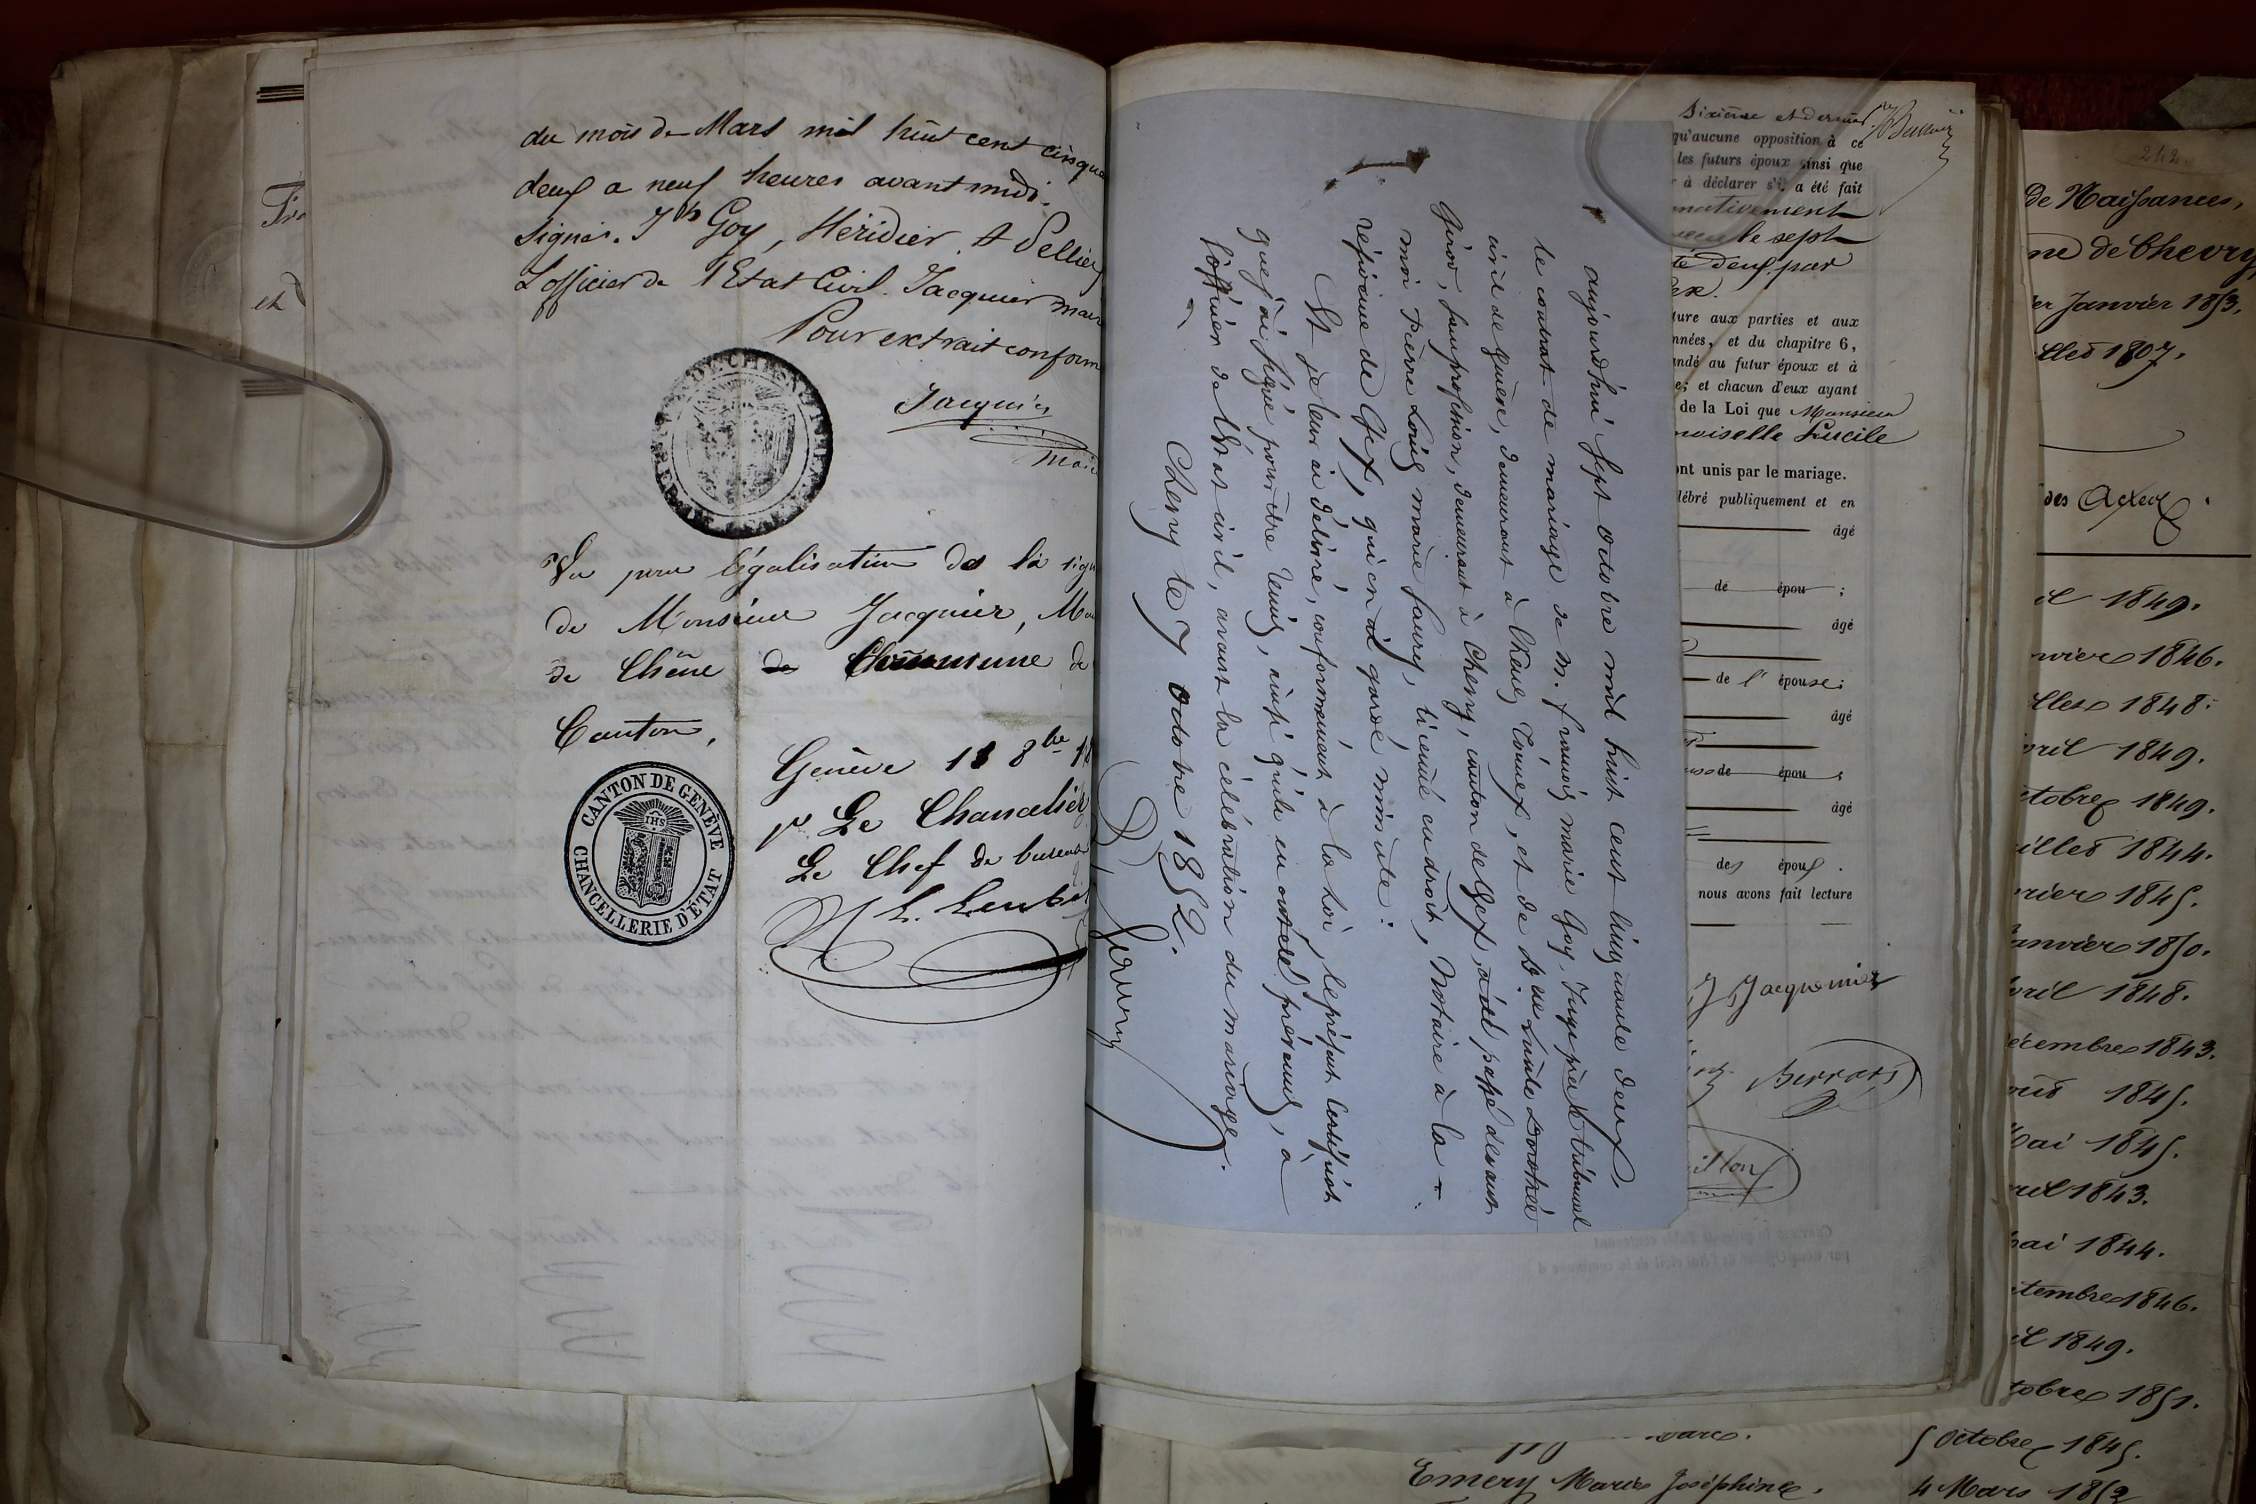 du mois de Mars mil huit cent cinqua
deux a neuf heures avant midi.
Signés. Jh Goy, Héridier, A Pellier
L'officier de l'Etat Civil. Jacquier mair
Pour extrait conform
Jacquier
Mair
Vu pour légalisation de la sign
de Monsieur Jacquier, Ma
de Chêne de Commune de
Canton,
Genève 18 8bre 18
pr Le Chancelier
Le Chef de bureau
CANTON DE GENÈVE
CHANCELLERIE D'ÉTAT
IHS
aujourd'hui sept octobre mil huit cent cinquante deux,
le contrat de mariage de M. françois marie Goy, Juge près le tribunal
civil de guerre, demeurant à
Girod, sans profession, demeurant à Chevry, canton de Gex, a été passé devant
moi Pierre Louis marie Saury, licencié en droit, Notaire à la
résidence de Gex, qui en ai gardé minute:
Et je leur ai délivré, conformément à la loi, le présent certificat
que j'ai signé pour être remis, ainsi qu'ils en ont été prévenus, à
l'officier de l'état civil, avant la célébration du mariage.
Chevry le 7 octobre 1852.
Sixième et dernier
qu'aucune opposition à ce
les futurs époux ainsi que
à déclarer s'il a été fait
mativement
le sept
te deux par
ture aux parties et aux
nnées, et du chapitre 6,
ndé au futur époux et à
e; et chacun d'eux ayant
de la Loi que Monsieur
moiselle Lucile
ont unis par le mariage.
lébré publiquement et en
âgé
de épou ;
âgé
de l'épouse;
âgé
de épou ;
âgé
des époux.
nous avons fait lecture
J Jacquemier
242
de Naissances,
ne de Chevry
er Janvier 1853.
illet 1807.
des Actes.
il 1849.
nvier 1846.
illet 1848.
vril 1849.
ctobre 1849.
illet 1844.
vrier 1845.
anvier 1850.
vril 1848.
écembre 1843.
1845.
Mai 1845.
ril 1843.
Mai 1844.
tembre 1846.
il 1849.
tobre 1851.
5 Octobre 1845.
Emery Marie Joséphine. 4 Mars 1852